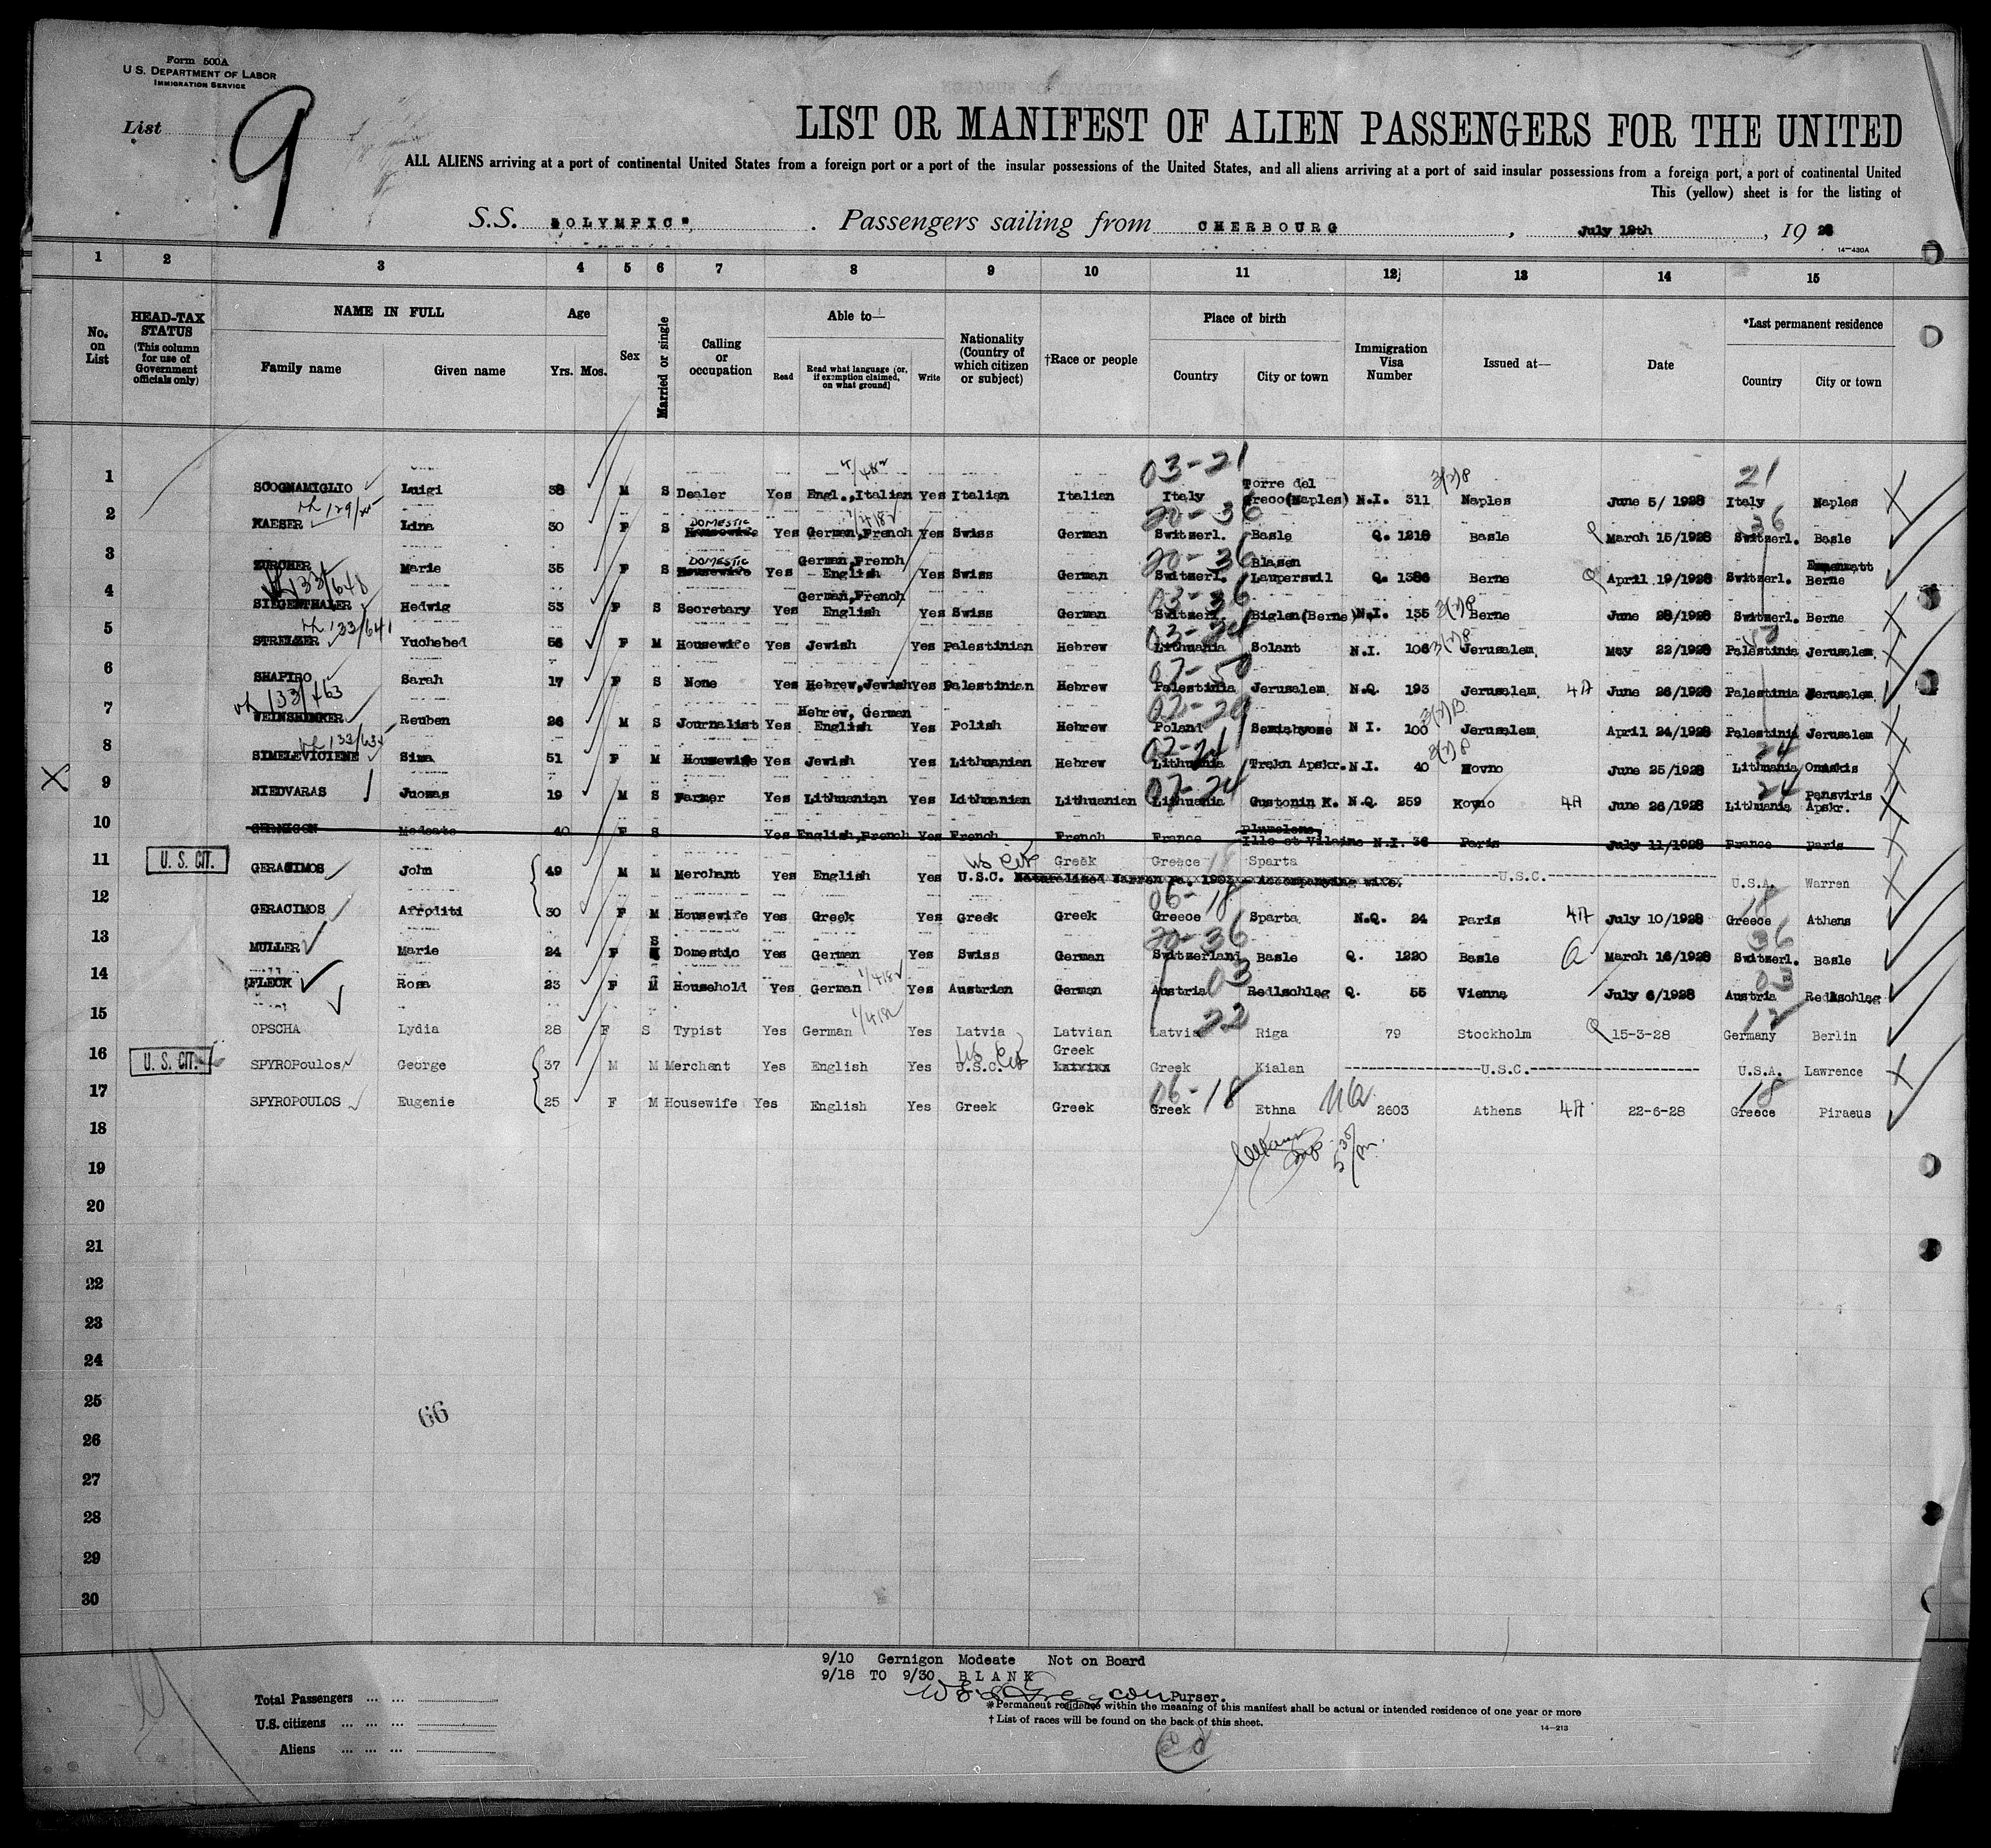 Form 500A
U.S. DEPARTMENT OF LABOR
IMMIGRATION SERVICE
List 9
LIST OR MANIFEST OF ALIEN PASSENGERS FOR THE UNITED
ALL ALIENS arriving at a port of continental United States from a foreign port or a port of the insular possessions of the United States, and all aliens arriving at a port of said insular possessions from a foreign port, a port of continental United
This (yellow) sheet is for the listing of
S.S. "OLYMPIC". Passengers sailing from CHERBOURG, July 18th, 19 28
14—430A
1 2 3 4 5 6 7 8 9 10 11 12 13 14 15
No. on List
HEAD-TAX STATUS (This column for use of Government officials only)
NAME IN FULL
Family name Given name
Age
Yrs. Mos.
Sex
Married or single
Calling or occupation
Able to—
Read Read what language (or, if exemption claimed, on what ground) Write
Nationality (Country of which citizen or subject)
†Race or people
Place of birth
Country City or town
Immigration Visa Number
Issued at—
Date
*Last permanent residence
Country City or town
03-21 21
1 SCOGNAMIGLIO Luigi 38 M S Dealer Yes Engl.,Italian Yes Italian Italian Italy Torre del Greco(Naples) N.I. 311 Naples June 5/ 1928 Italy Naples
20-36 36
2 KAESER Lina 30 F S DOMESTIC Housewife Yes German,French Yes Swiss German Switzerl. Basle Q. 1218 Basle March 15/1928 Switzerl. Basle
20-36
3 ZURCHER Marie 35 F S DOMESTIC Housewife Yes German,French English Yes Swiss German Switzerl. Blasen Lauperswil Q. 1386 Berne April 19/1928 Switzerl. Berne
133/648 03-36
4 SIEGENTHALER Hedwig 53 F S Secretary Yes German,French English Yes Swiss German Switzerl. Biglen(Berne) N.I. 135 Berne June 28/1928 Switzerl. Berne
133/641
5 STRELZER Yuchebed 56 F M Housewife Yes Jewish Yes Palestinian Hebrew Lithuania Solant N.I. 106 Jerusalem. May 22/1928 Palestinia Jerusalem.
07-50
6 SHAPIRO Sarah 17 F S None Yes Hebrew,Jewish Yes Palestinian Hebrew Palestinia Jerusalem N.Q. 193 Jerusalem 4A June 26/1928 Palestinia Jerusalem
133/463
7 Reuben 26 M S Journalist Yes Hebrew, German English Yes Polish Hebrew Poland N I. 100 Jerusalem April 24/1928 Palestinia Jerusalem
24
8 SIMELEVICIENE Sima 51 F M Housewife Yes Jewish Yes Lithuanian Hebrew Lithuania Trekn Apskr. N.I. 40 Kovno June 25/1928 Lithuania
07-24 24
9 NIEDVARAS Juozas 19 M S Farmer Yes Lithuanian Yes Lithuanian Lithuanian Lithuania Gustonin K. N.Q. 259 Kovno 4A June 26/1928 Lithuania Pensviris Apskr.
10 GERNIGON Modeate 40 F S Yes English,French Yes French French France Ille et Vilaine N.I. 36 Paris July 11/1928 France Paris
11 U. S. CIT. GERACIMOS John 49 M M Merchant Yes English Yes U.S.C. Greek Greece Sparta Naturalized Warren Pa. Accompanying wife. U.S.C. U.S.A. Warren
06-18 18
12 GERACIMOS Afroditi 30 F M Housewife Yes Greek Yes Greek Greek Greece Sparta N.Q. 24 Paris 4A July 10/1928 Greece Athens
20-36 36
13 MULLER Marie 24 F S Domestic Yes German Yes Swiss German Switzerland Basle Q. 1220 Basle March 16/1928 Switzerl. Basle
03 03
14 FLECK Rosa 23 F M Household Yes German Yes Austrian German Austria Redlschlag Q. 55 Vienna July 6/1928 Austria Redlschlag
22 12
15 OPSCHA Lydia 28 F S Typist Yes German Yes Latvia Latvian Latvia Riga 79 Stockholm Q 15-3-28 Germany Berlin
16 U. S. CIT. SPYROPoulos George 37 M M Merchant Yes English Yes U.S.C. Greek Latvian Greek Kialan U.S.C. U.S.A. Lawrence
06-18 18
17 SPYROPOULOS Eugenie 25 F M Housewife Yes English Yes Greek Greek Greek Ethna NQ 2603 Athens 4A 22-6-28 Greece Piraeus
18
19
20
21
22
23
24
25
66
26
27
28
29
30
9/10 Gernigon Modeate Not on Board
9/18 TO 9/30 BLANK
Purser.
Total Passengers
U.S. citizens
Aliens
*Permanent residence within the meaning of this manifest shall be actual or intended residence of one year or more
† List of races will be found on the back of this sheet.
14—213